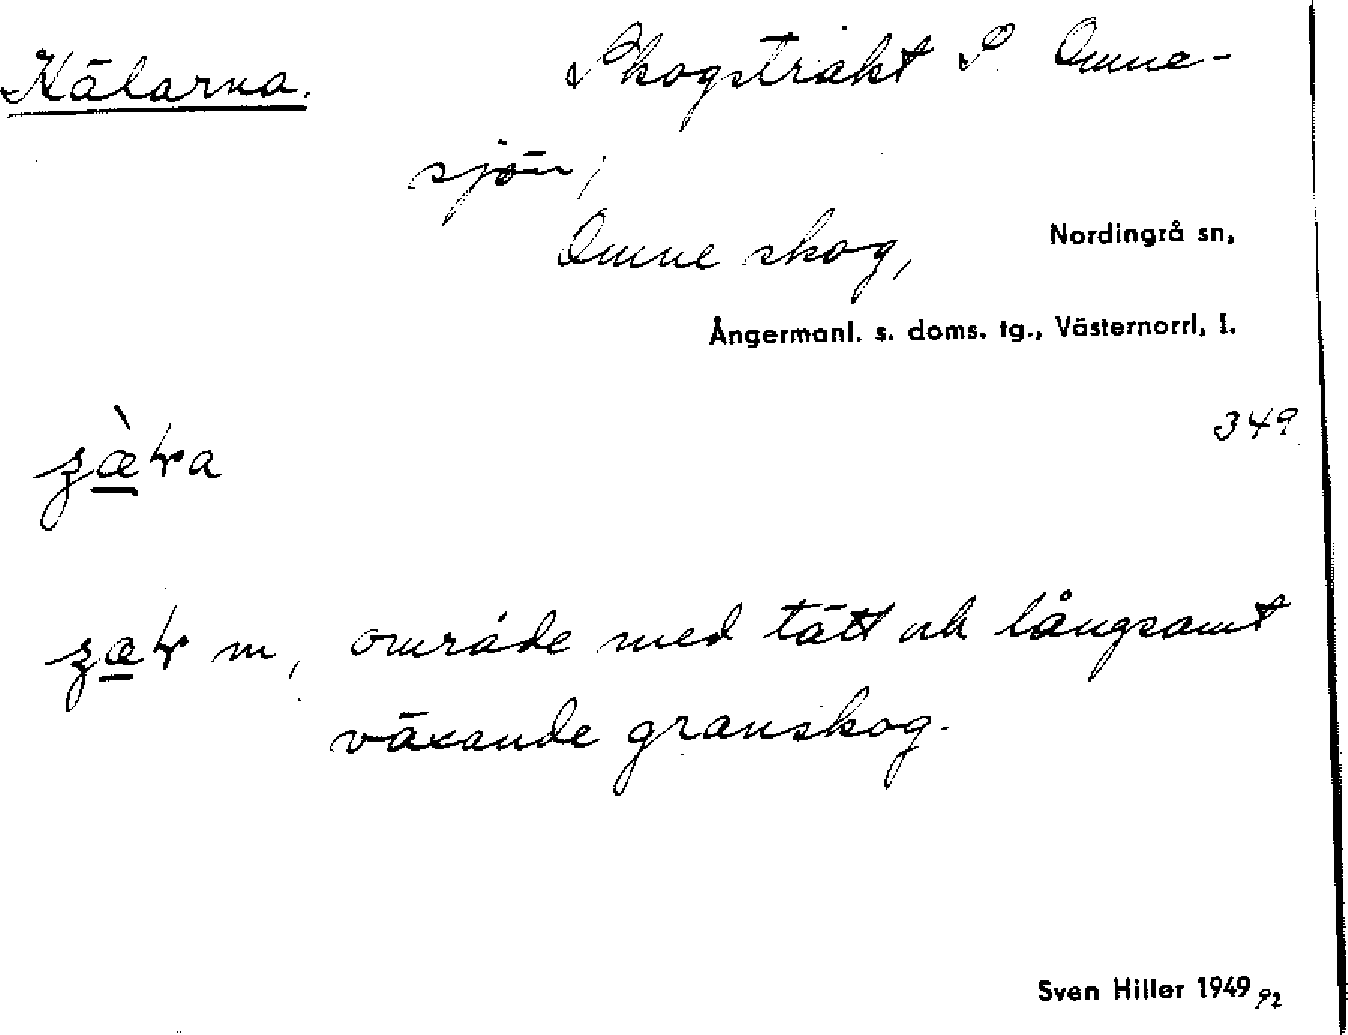 Kälarna. Skogstrakt S. Omne-
sjön,
Omne skog, Nordingrå sn,
Ångermanl. s. doms. tg., Västernorrl. l.
349
område med tätt och långsamt
växande granskog.
Sven Hiller 1949 92